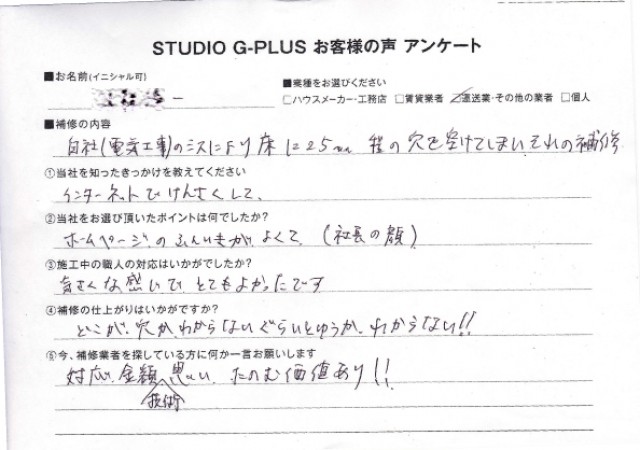 STUDIO G-PLUS お客様の声 アンケート
■お名前(イニシャル可)
■業種をお選びください
□ハウスメーカー・工務店 □賃貸業者 ☑運送業・その他の業者 □個人
■補修の内容
自社(電気工事)のミスにより床に25mm 程の穴を空けてしまいそれの補修
①当社を知ったきっかけを教えてください
インターネットでけんさくして、
②当社をお選び頂いたポイントは何でしたか?
ホームページのふんいきがよくて (社長の顔)
③施工中の職人の対応はいかがでしたか?
気さくな感じで、とてもよかったです
④補修の仕上がりはいかがですか?
どこが、穴か、わからないぐらいとゆうか、わからない!!
⑤今、補修業者を探している方に何か一言お願いします
対応、金額、思い、たのむ価値あり!!
技術